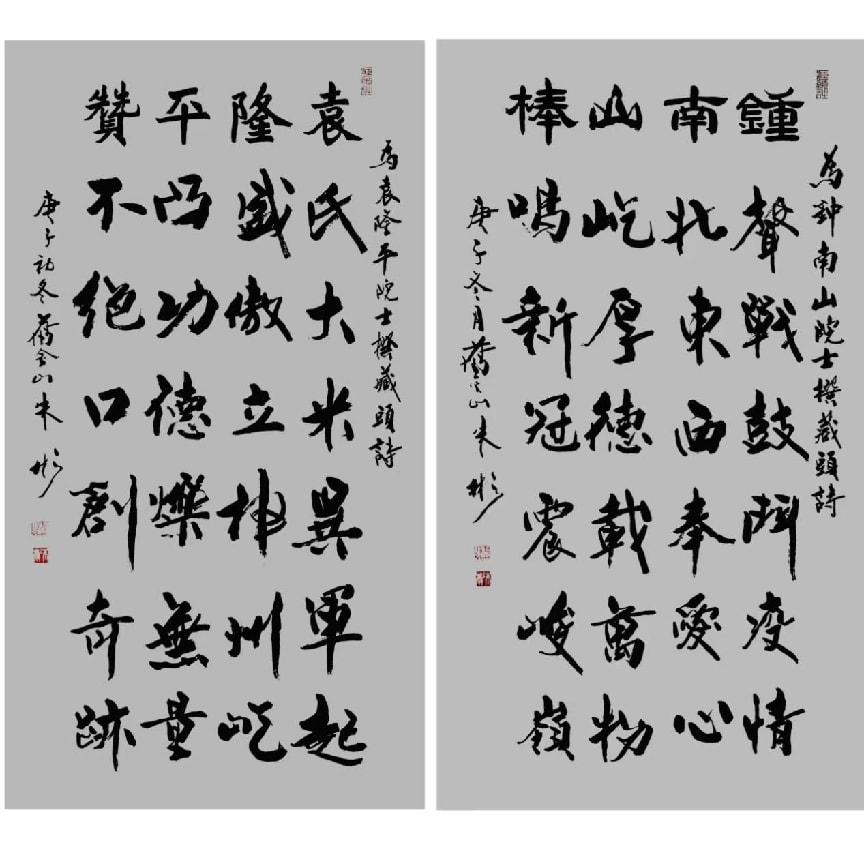 為鈡南山院士撰藏頭詩
鍾聲戰鼓鬥疫情
南北東西奉愛心
山屹厚德載萬物
棒鳴新冠震峻嶺
庚子冬月 山朱彬
為袁隆平院士撰藏頭詩
袁氏大米異軍起
隆盛傲立神州屹
平凸功德爍無量
贊不絕口創奇跡
庚子初冬 金山朱彬